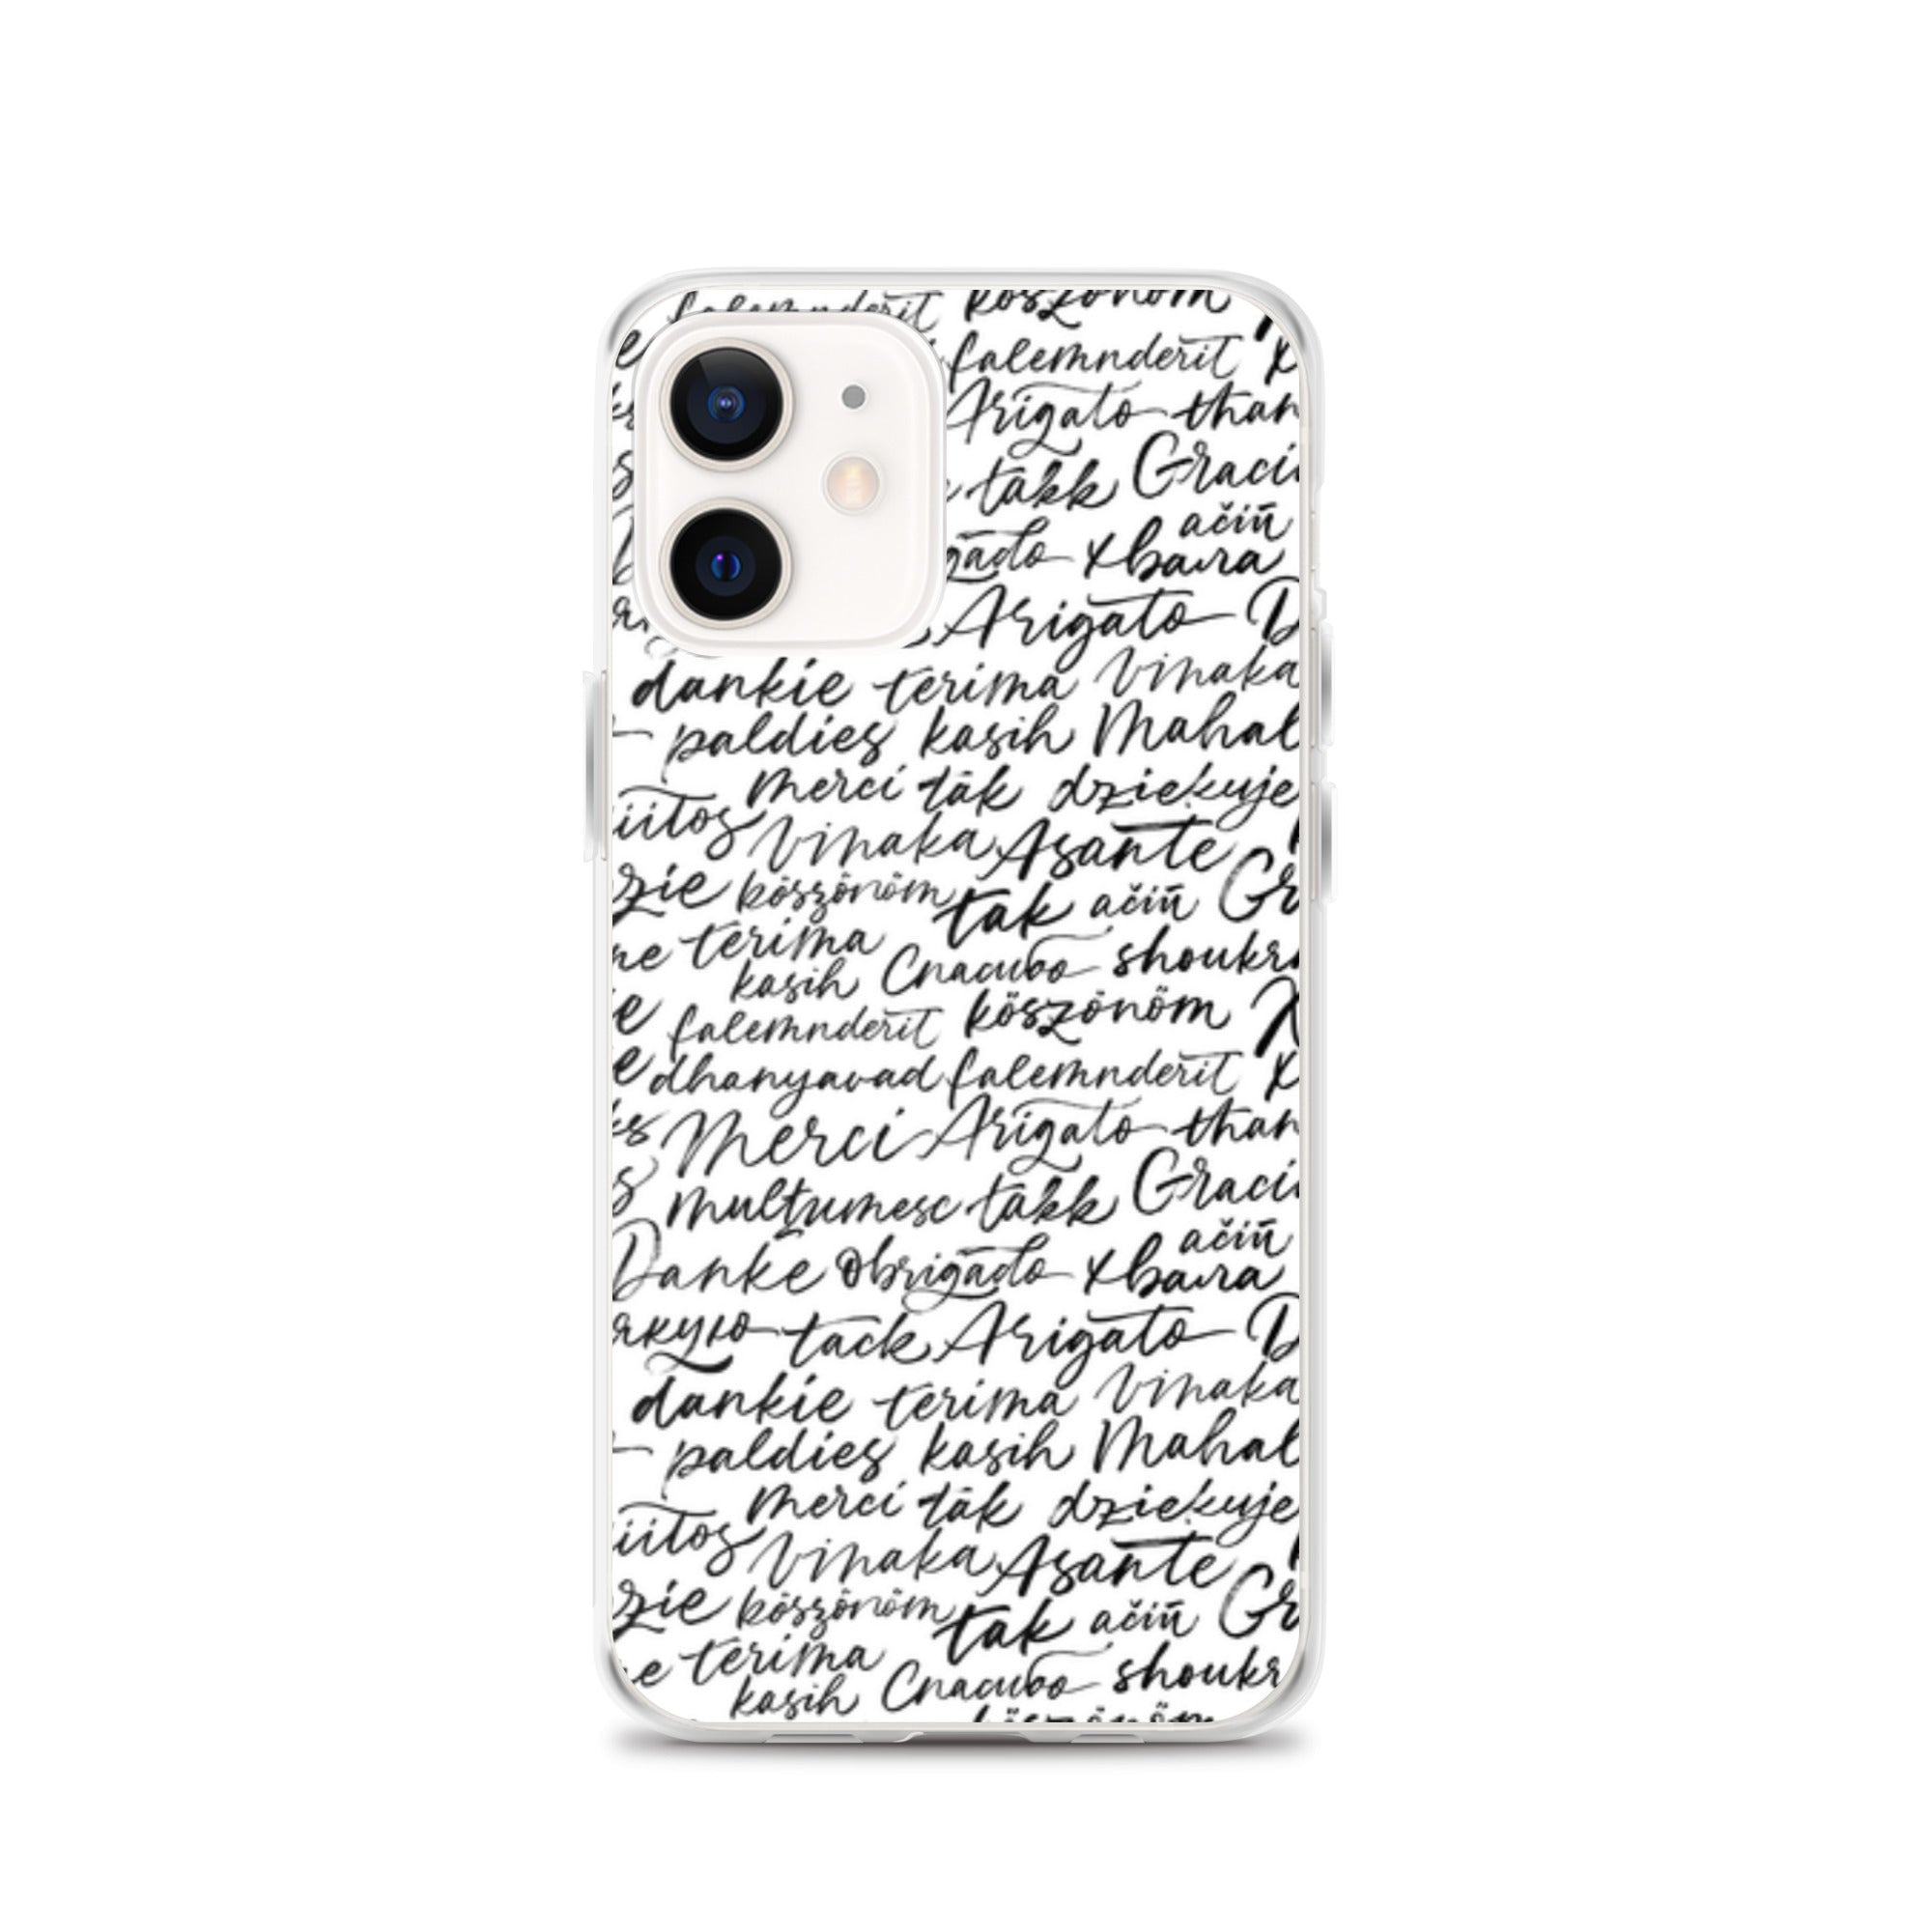 falemnderit köszönöm
e falemnderit
Arigato than
s takk Graci
ačiū
gado Хвала
Arigato D
dankie terima Vinaka
paldies kasih Mahal
Merci tāk dziekuje
iitos Vinaka Asante
zie köszönöm tak ačiū Gr
ne terima
kasih Спасибо shoukr
e falemnderit köszönöm
e dhanyavad falemnderit
ks Merci Arigato than
s Multumesc takk Graci
ačiū
Danke Obrigado Хвала
якую tack Arigato D
dankie terima Vinaka
paldies kasih Mahal
Merci tāk dziekuje
iitos Vinaka Asante
zie köszönöm tak ačiū Gr
e terima
kasih Спасибо shoukr
köszönöm